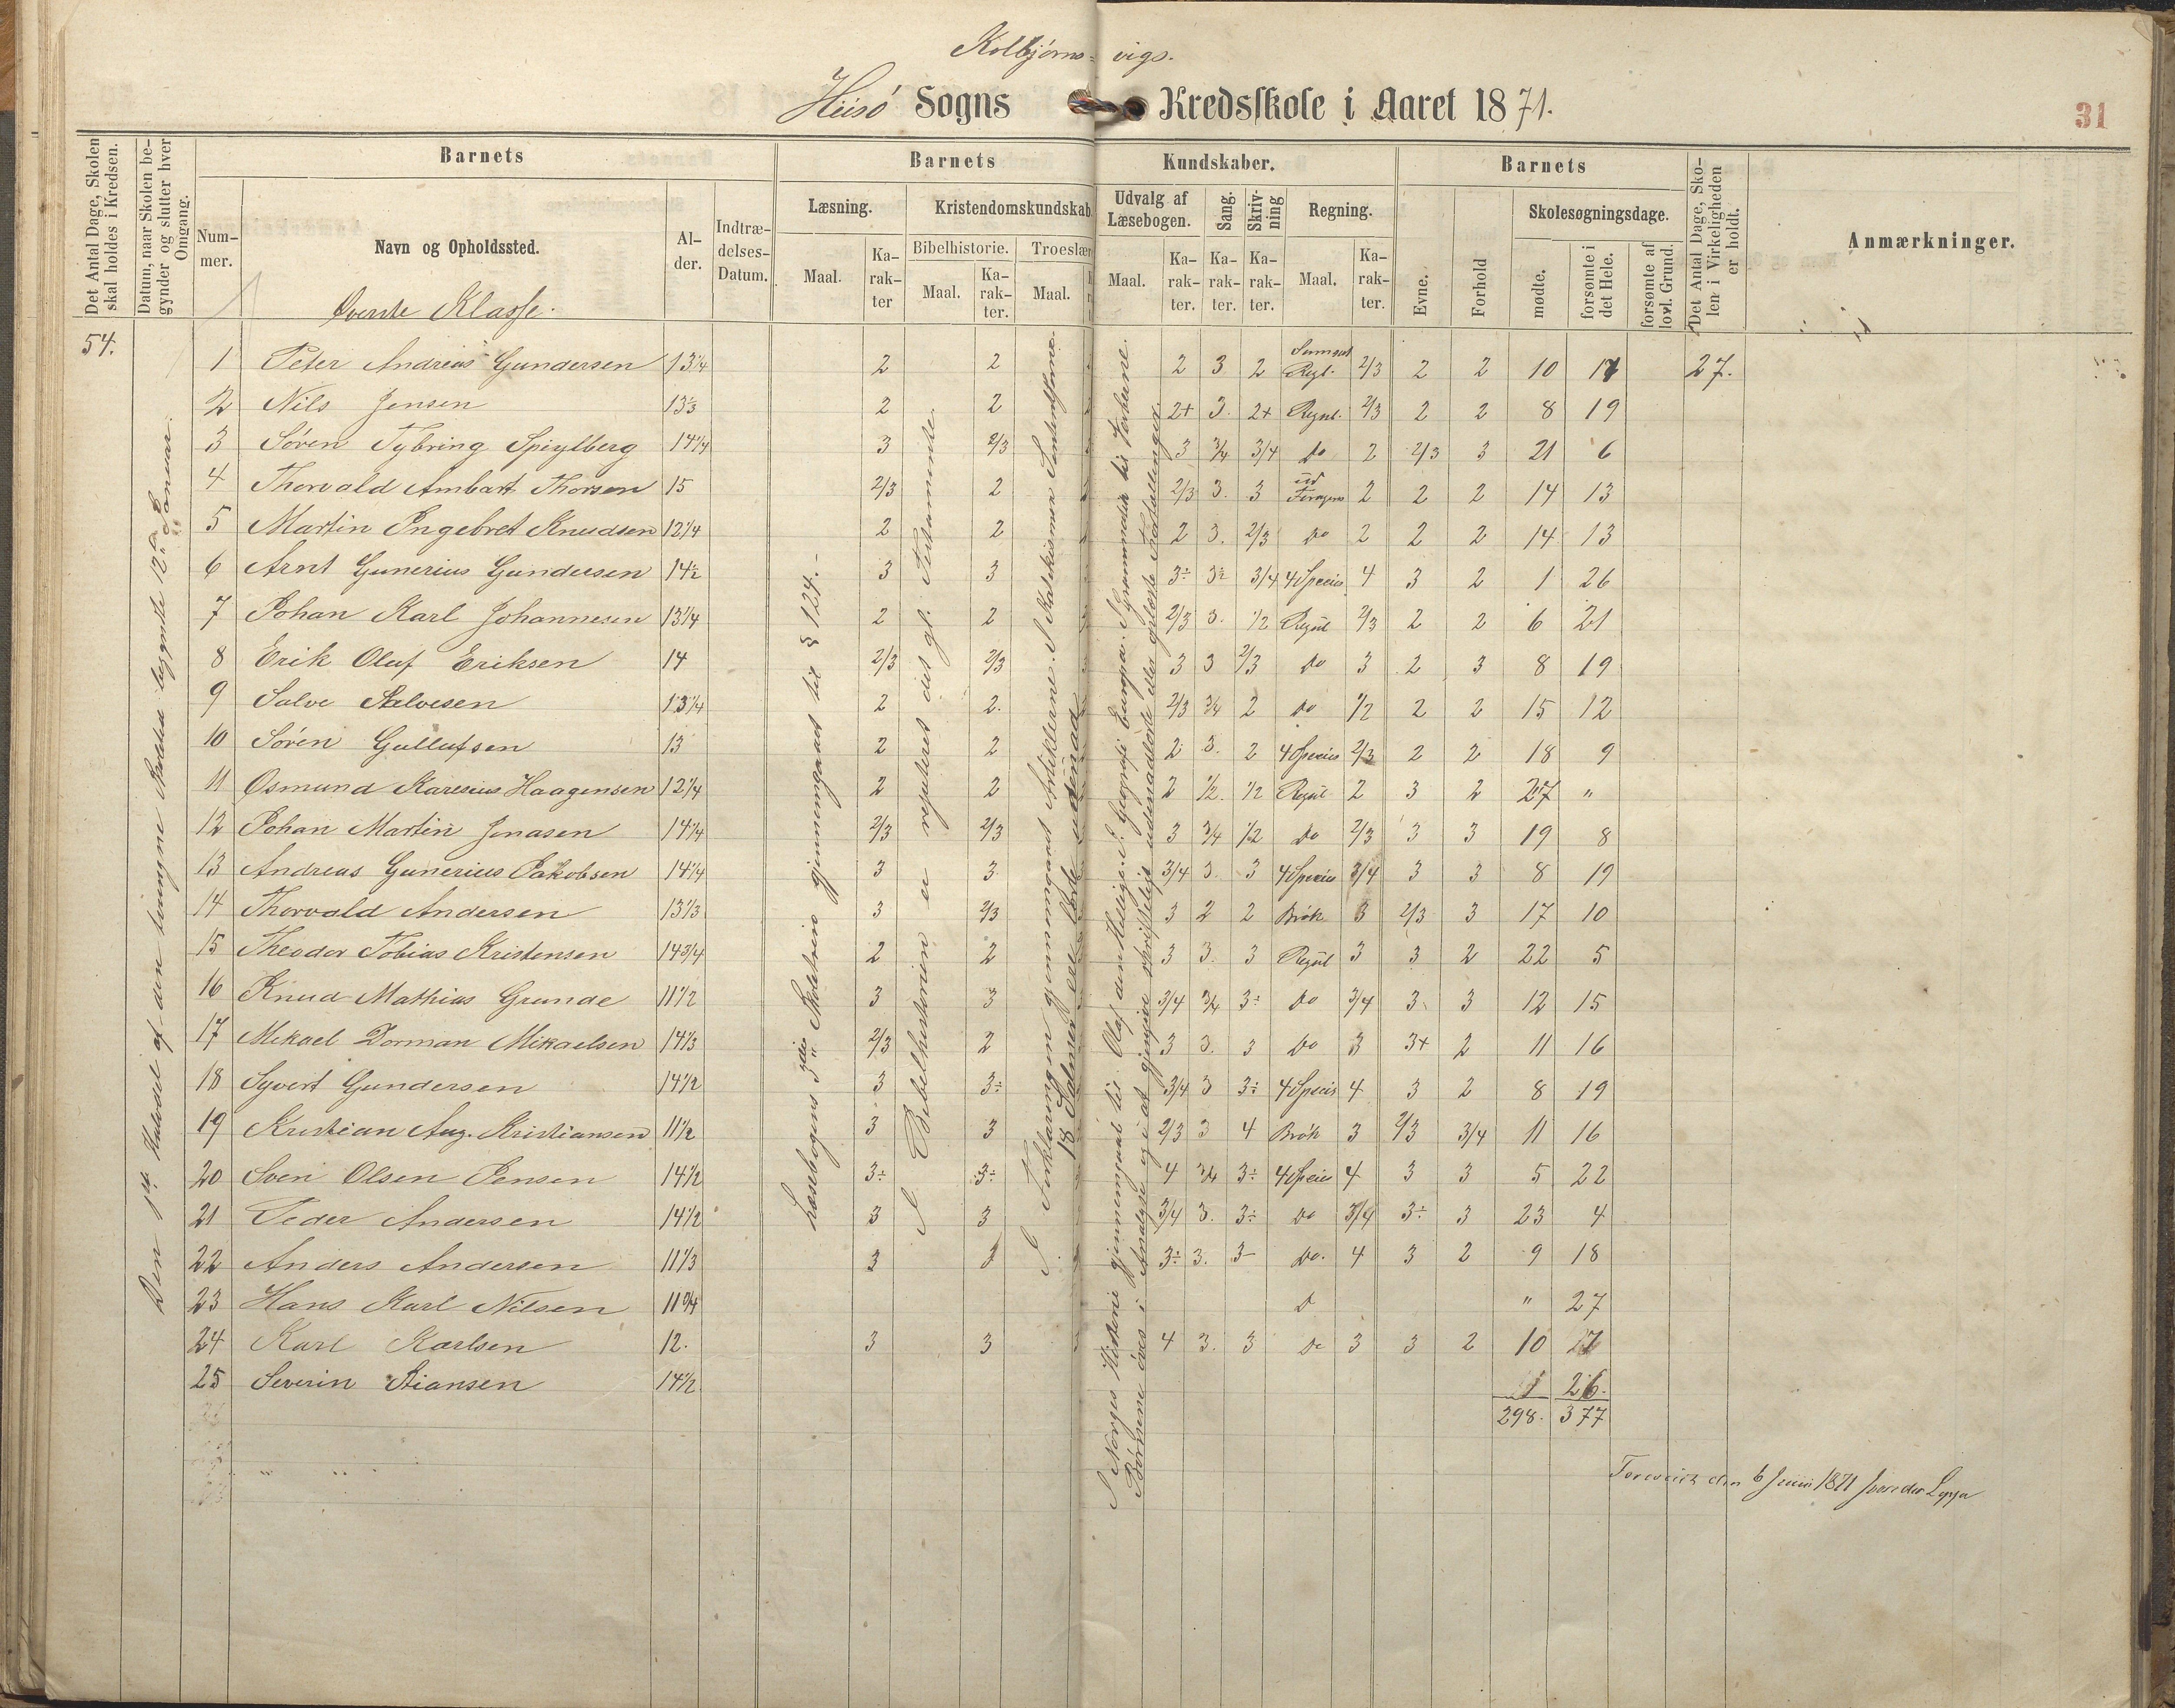 Kolbjørns- vigs.
Hiisö Sogns Kredsskole i Aaret 1871.
31
Det Antal Dage, Skolen skal holdes i Kredsen.
Datum, naar Skolen begynder og slutter hver Omgang.
Barnets
Nummer.
Navn og Opholdssted.
Alder.
Indtrædelses-Datum.
Barnets Kundskaber.
Læsning.
Maal.
Karakter
Kristendomskundskab.
Bibelhistorie.
Maal.
Karakter.
Troeslær
Maal.
Udvalg af Læsebogen.
Maal.
Karakter.
Sang.
Karakter.
Skrivning
Karakter.
Regning.
Maal.
Karakter.
Barnets
Evne.
Forhold
Skolesøgningsdage.
mødte.
forsømte i det Hele.
forsømte af lovl. Grund.
Det Antal Dage, Skolen i Virkeligheden er holdt.
Anmærkninger.
Øverste Klasse.
54.
1 Peter Andreas Gundersen 13 1/4 2 2 2 3 2 Regl. 2/3 2 2 10 17 27.
2 Nils Jensen 13 1/3 2 2 2+ 3. 2+ Regul. 2/3 2 2 8 19
3 Sören Tybring Spiylberg 14 1/4 3 2/3 3 3/4 3/4 do 2 2/3 3 21 6
4 Thorvald Ambart Thorsen 15 2/3 2 2/3 3. 3 2 2 2 14 13
5 Martin Engebret Knudsen 12 1/4 2 2 2 3. 2/3 do 2 2 2 14 13
6 Arnt Gunerius Gundersen 14 1/2 3 3 3÷ 3÷ 3/4 4 Species 4 3 2 1 26
7 Johan Karl Johannesen 13 1/4 2 2 2/3 3. 1/2 Regul 2/3 2 2 6 21
8 Erik Oluf Eriksen 14 2/3 2/3 3 3 2/3 do 3 2 3 8 19
9 Salve Salvesen 13 1/4 2 2. 2/3 3/4 2 do 1/2 2 2 15 12
10 Sören Gullufsen 13 2 2 2 3. 2 4 Species 2/3 2 2 18 9
11 Osmund Karesius Haagensen 12 1/4 2 2 2 1/2. 1/2 Regul 2 3 2 27 "
12 Johan Martin Jonasen 14 1/4 2/3 2/3 3 3/4 1/2 do 2/3 3 3 19 8
13 Andreas Gunerius Jakobsen 14 1/4 3 3 3/4 3. 3 4 Species 3/4 3 3 8 19
14 Thorvald Andersen 13 1/3 3 2/3 3 2 2 Brøk 3 2/3 3 17 10
15 Theodor Tobias Kristensen 14 3/4 2 2 3 3. 3 Regul 3 3 2 22 5
16 Knud Mathias Grunde 11 1/2 3 3 3/4 3/4 3÷ do 3/4 3 3 12 15
17 Mikael Dorman Mikaelsen 14 1/3 2/3 2 3 3. 3 do 3 3+ 2 11 16
18 Syvert Gundersen 14 1/2 3 3÷ 3/4 3 3÷ 4 Specis 4 3 2 8 19
19 Kristian Aug. Kristiansen 11 1/2 3 3 2/3 3 4 Brøk 3 2/3 3/4 11 16
20 Sven Olsen Jensen 14 1/2 3÷ 3÷ 4 3/4 3÷ 4 Specie 4 3 3 5 22
21 Peder Andersen 14 1/2 3 3 3/4 3. 3÷ do 3/4 3÷ 3 23 4
22 Anders Andersen 11 1/3 3 3÷ 3. 3- do. 4 3 2 9 18
23 Hans Karl Nilsen 11 3/4 " 27
24 Karl Karlsen 12. 3 3 4 3. 3 do 3 3 2 10 17
25 Severin Stiansen 14 1/2 1 26.
298. 377
Den 1ste Halvdel af den tvungne Skoletid begyndte 12te Januar.
Læsebogens 3die Skoletrin gjennemgaaet til § 124.-
I Bibelhistorien er repeteret det gl. Testamente.
I Forklaringen gjennemgaaet Artiklerne. I Katekismen Sakramenterne.
18 Salmer ere lærte udenad
I Norges Historie gjennemgaaet til Olaf den Hellige. I Geografi Europa. I Grammatik til Verberne.
Børnene øves i Analyse og i at gjengive skriftligt udenadlærte eller oplæste Fortællinger.
den 6 Juni 1871